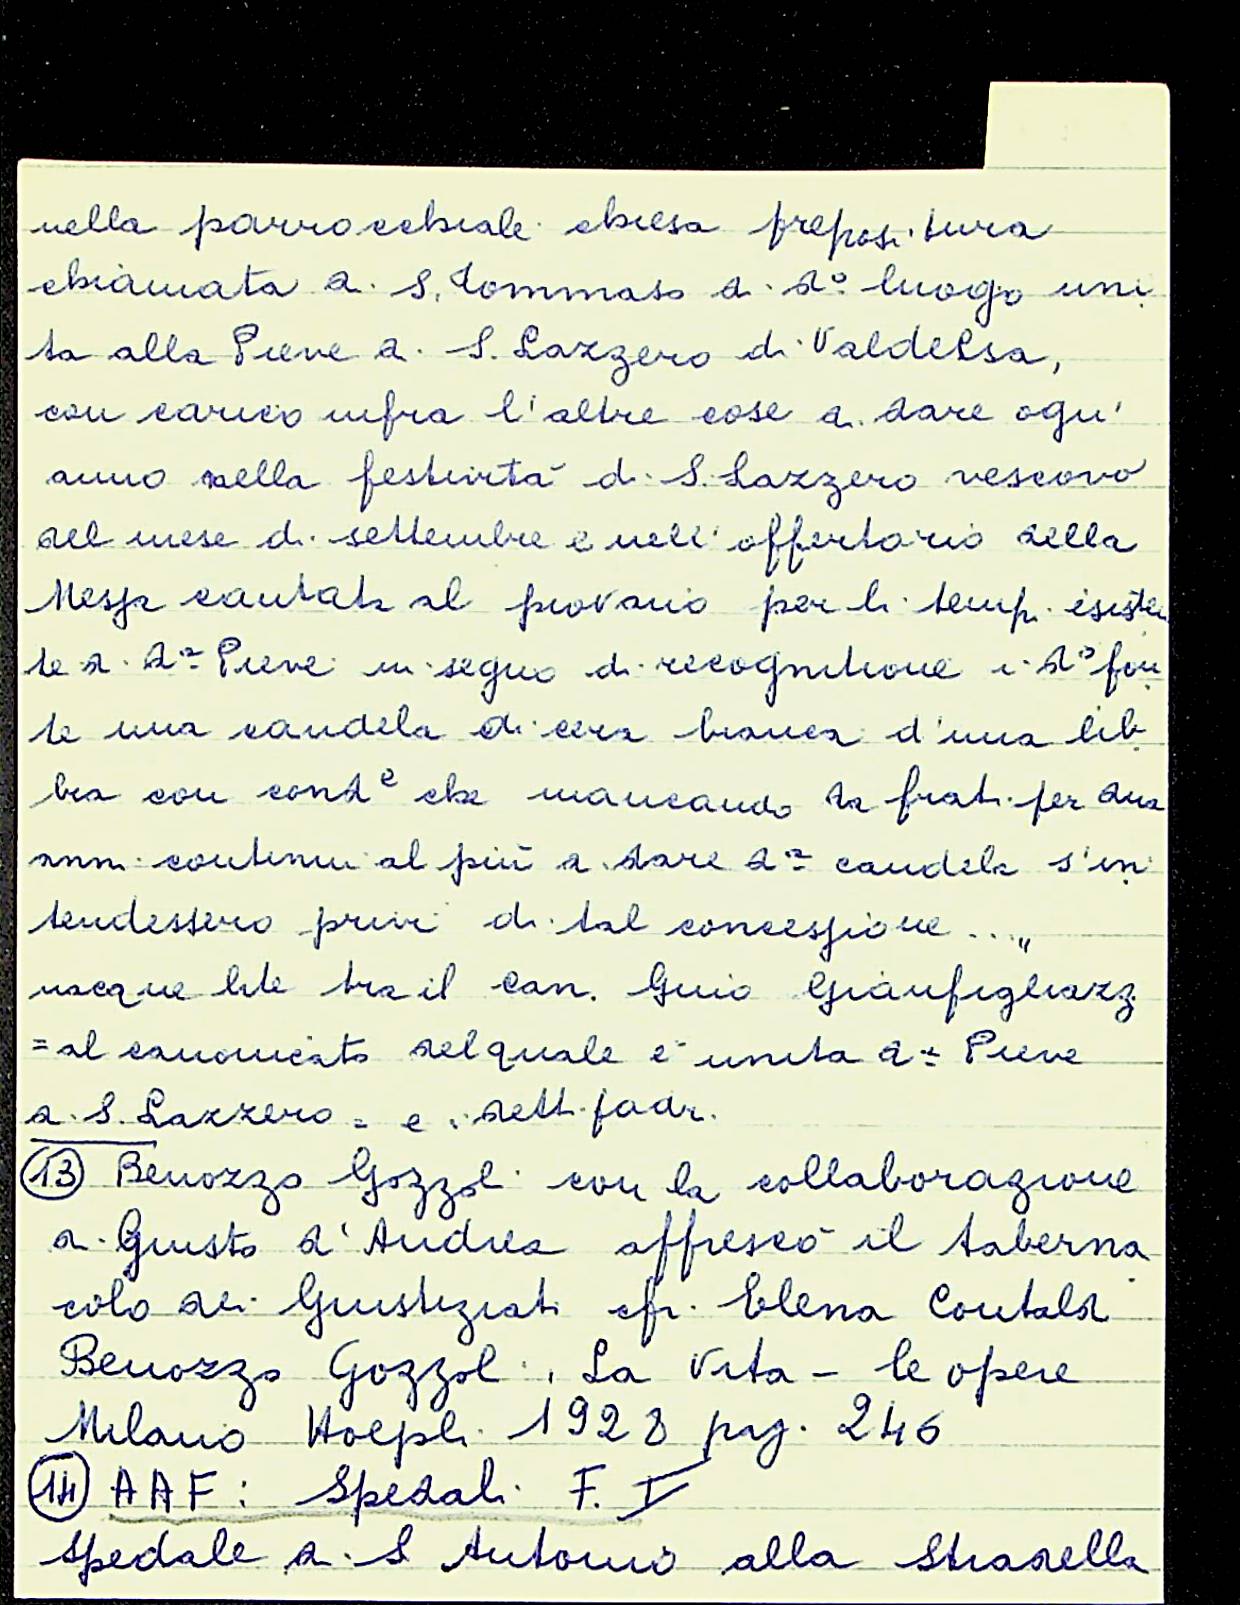 nella parrocchiale chiesa prepositura
chiamata di S. Tommaso di dº luogo uni
ta alla Pieve di S. Lazzero di Valdelsa,
con carico infra l'altre cose di dare ogni
anno nella festività di S. Lazzero vescovo
del mese di settembre e nell'offertorio della
Messa cantata al piovano per li tempi esisten
te di dª Pieve in segno di recognitione i dº fon
te una candela di cera bianca d'una lib
bra con condᵉ che mancando da frati per due
anni continui al più di dare dª candela s'in
tendessero privi di tal concessione ...„
nacque lite tra il Can. Guio Gianfigliazzi
= al canonicato del quale è unita dª Pieve
di S. Lazzero = e i detti padri.
13 Benozzo Gozzoli con la collaborazione
di Giusto d'Andrea affrescò il taberna
colo dei Giustiziati cfr. Elena Contaldi
Benozzo Gozzoli, La Vita - le opere
Milano Hoepli 1928 pag. 246
14 AAF: Spedali F. I
Spedale di S Antonio alla Stradella